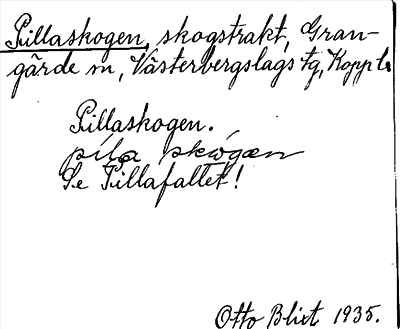 Pillaskogen, skogstrakt, Gran-
gärde sn, Västerbergslags tg, Kopp l.
Pillaskogen.
Se Pillafallet!
Otto Blixt 1935.